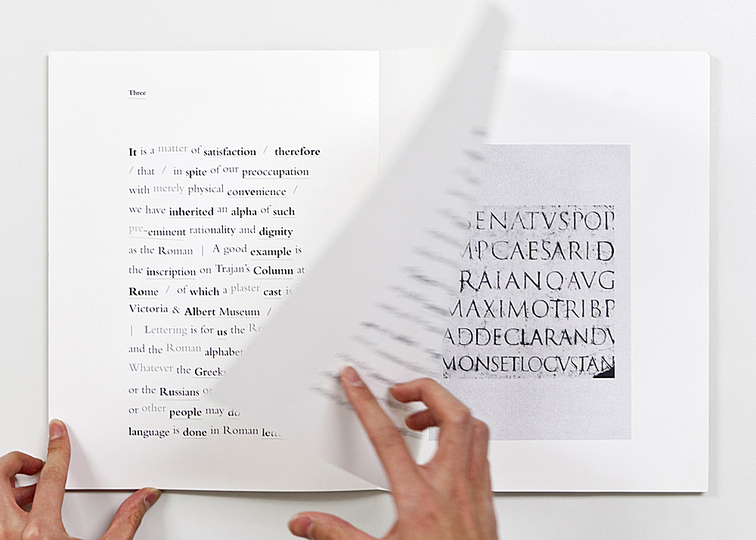 Three
It is a matter of satisfaction / therefore
/ that / in spite of our preoccupation
with merely physical convenience /
we have inherited an alpha of such
pre-eminent rationality and dignity
as the Roman | A good example is
the inscription on Trajan's Column at
Rome / of which a plaster cast is
Victoria & Albert Museum /
| Lettering is for us the
and the Roman alphabet
Whatever the Greeks
or the Russians or
or other people may do
language is done in Roman
SENATVSPOP
MPCAESARID
RAIANOAVG
MAXIMOTRIBP
ADDECLARANDV
MONSETLOCVSTAN